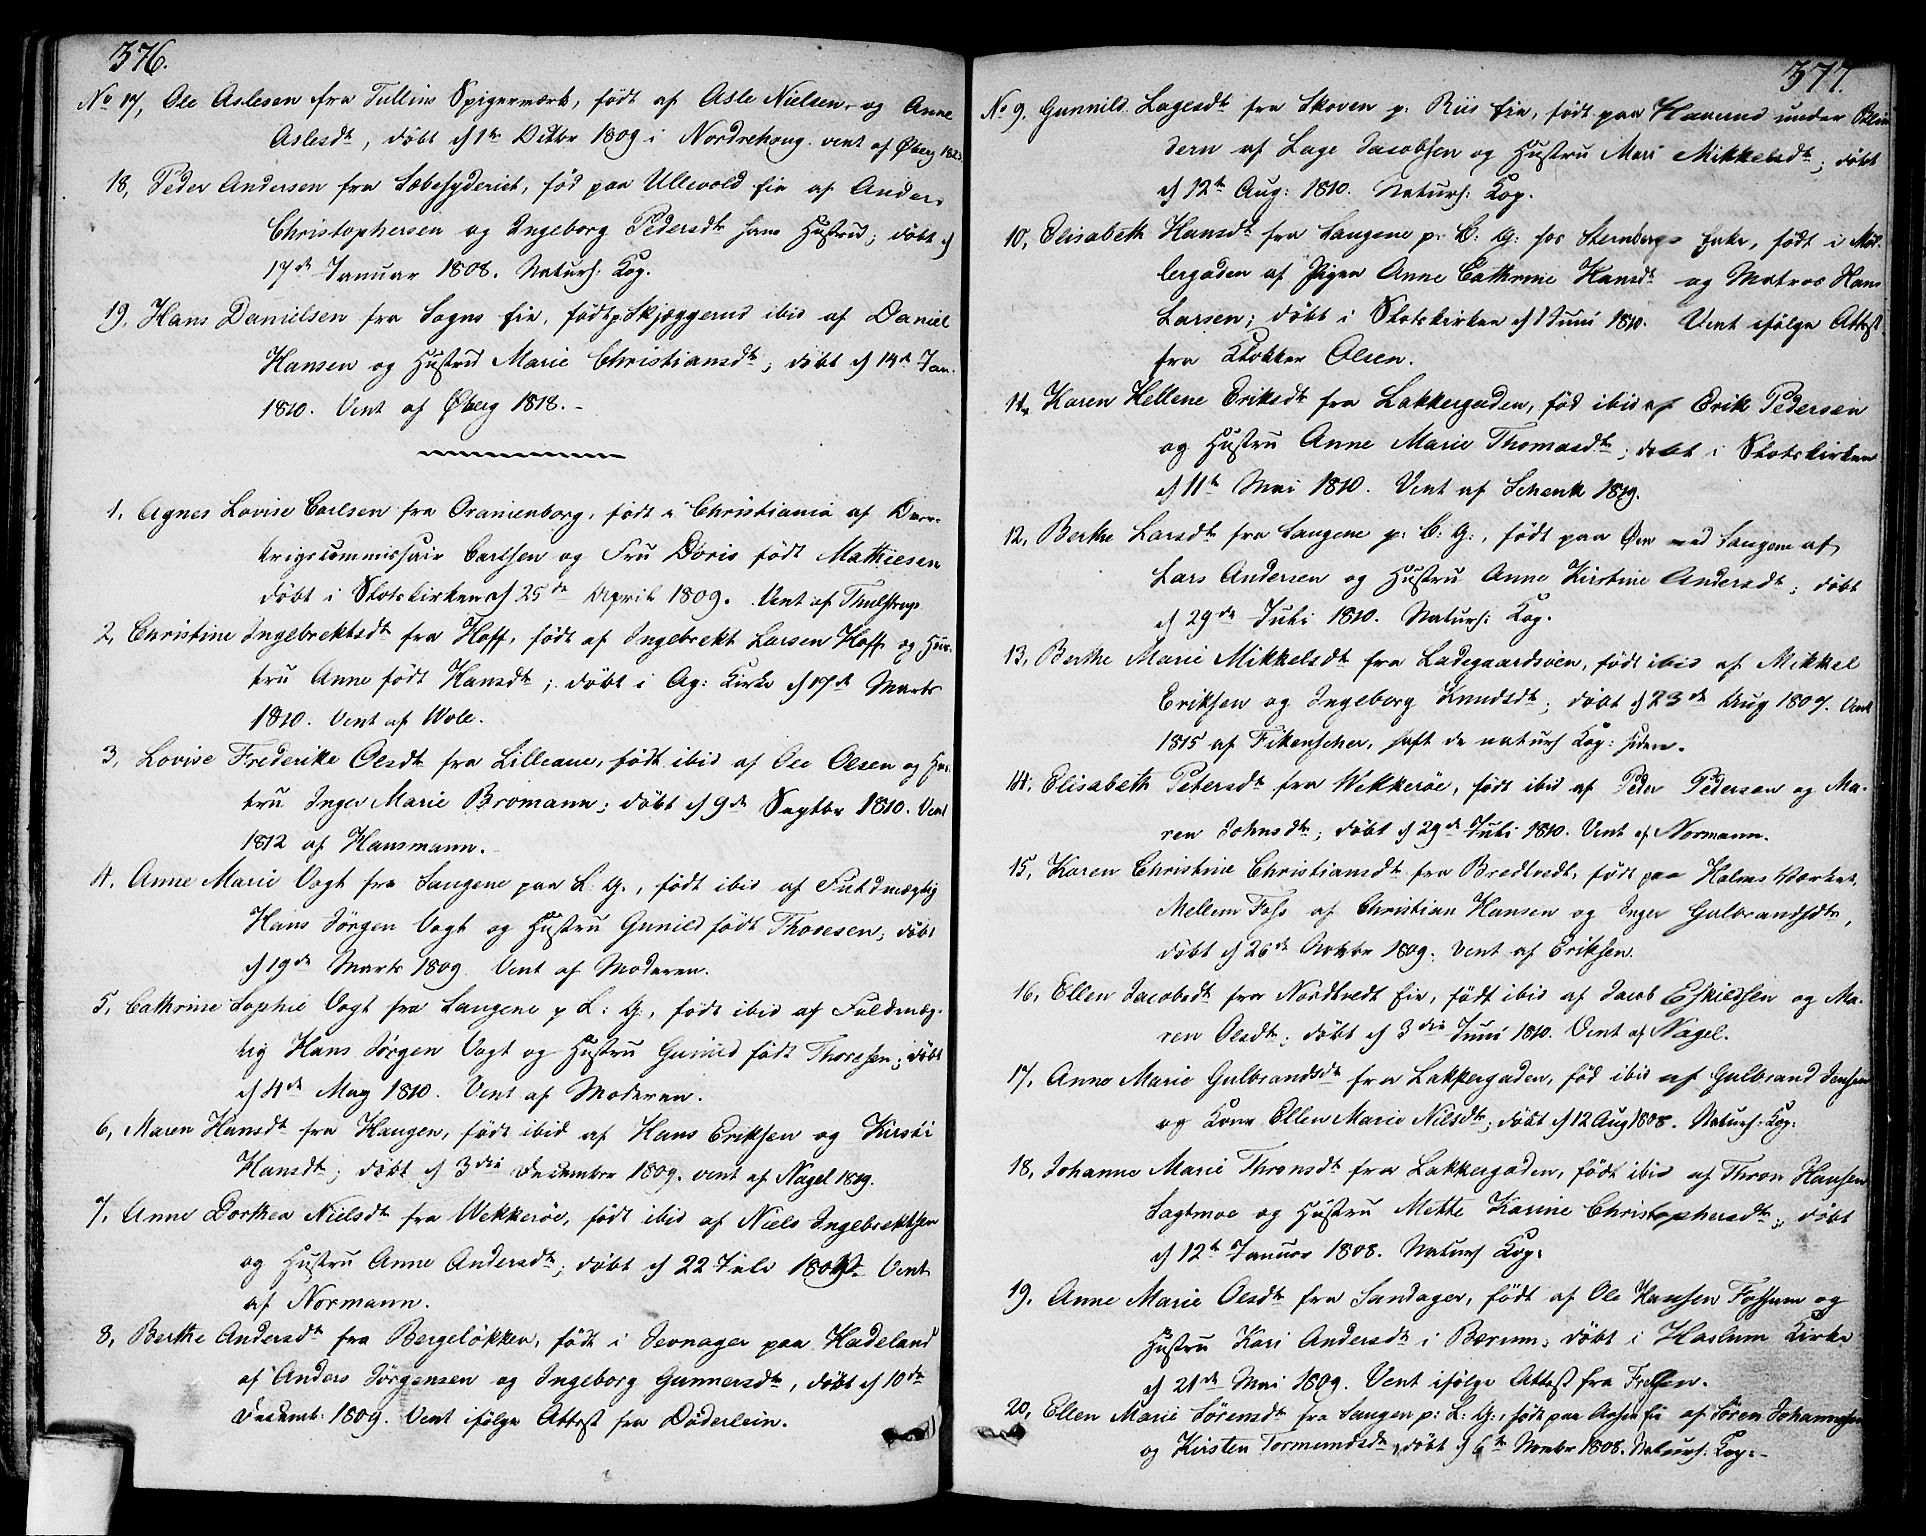 376.
No 17, Ole Aslesen fra Tullins Spigerverk, født af Asle Nielsen og Anne
Aslesdtr, døbt d 1te Octbr 1809 i Nordrehoug. vent af Øberg
18, Peder Andersen fra Sæbesyderiet, fød paa Ullevold Eie af Anders
Christophersen og Ingeborg Pedersdtr hans Hustru; døbt d
17de Januar 1808. Naturl: Kop.
19, Hans Danielsen fra Sogns Eie, født p Skjøggerud ibid af Daniel
Hansen og Hustru Marie Christiansdtr; døbt d 14de Jan.
1810. Vent af Øberg 1818.
1, Agnes Lovise Carlsen fra Oranienborg, født i Christiania af Over-
krigscommissair Carlsen og Fru Doris født Mathiesen
døbt i Slotskirken d 25de April 1809. Vent af Thulstrup
2, Christine Ingebrektsdtr fra Hoff, født af Ingebrekt Larsen Hoff og Hus-
tru Anne født Hansdtr; døbt i Ag: Kirke d 17de Marts
1810. Vent af Wole.
3, Lovise Frederike Olsdtr fra Lilleane, født ibid af Ole Olsen og Hus-
tru Inger Marie Bromann; døbt d 9de Septbr 1810. Vent
1812 af Hansmann.
4, Anne Marie Vogt fra Saugene paa L: G:, født ibid af Fuldmægtig
Hans Jørgen Vogt og Hustru Gunild født Thoresen, døbt
d 19de Marts 1809. Vent af Moderen.
5, Cathrine Sophie Vogt fra Saugene p L: G:, født ibid af Fuldmæg-
tig Hans Jørgen Vogt og Hustru Gunild født Thoresen; døbt
d 4de May 1810. Vent af Moderen.
6, Maren Hansdtr fra Haugen, født ibid af Hans Eriksen og Kirsti
Hansdtr; døbt d 3die Decembr 1809. vent af Nagel 1819.
7, Anne Dorthea Nielsdtr fra Wekkerøe, født ibid af Niels Ingebrektsen
og Hustru Anne Andersdtr; døbt d 22 Vent
af Normann.
8, Berthe Andersdtr fra Bergeløkken, født i Jevnager paa Hadeland
af Anders Jørgensen og Ingeborg Gunnersdtr, døbt d 10de
Decemb: 1809. Vent ifølge Attest fra Døderlein.
377.
No 9, Gunnild Lagesdtr fra Skoven p: Riis Eie, født paa under
dern af Lage Jacobsen og Hustru Mari Mikkelsdtr; døbt
d 12te Aug: 1810. Naturl: Kop.
10, Elisabeth Hansdtr fra Saugene p: L: G: hos Stenbergs Enke, født i Møl-
lergaden af Pigen Anne Cathrine Hansdtr og Matros Hans
Larsen; døbt i Slotskirken d 1 Juni 1810. Vent ifølge Attest
fra Klokker Olsen.
11, Karen Hellene Eriksdtr fra Lakkergaden, fød ibid af Erik Pedersen
og Hustru Anne Marie Thomasdtr; døbt i Slotskirken
d 11te Mai 1810. Vent af Schenk 1819.
12, Berthe Larsdtr fra Saugene p: L: G:, født paa Øen ved Saugene af
Lars Andersen og Hustru Anne Kirstine Andersdtr; døbt
d 29de Juli 1810. Naturl: Kop.
13, Berthe Marie Mikkelsdtr fra Ladegaardsøen, født ibid af Mikkel
Eriksen og Ingeborg Knudsdtr; døbt d 23de Aug 1807. Vent
1815 af Fikenscher, haft de naturl Kop: siden.
14, Elisabeth Petersdtr fra Wekkerøe, født ibid af Peder Pedersen og Ma-
ren Johnsdtr; døbt d 29de Juli 1810. Vent af Normann.
15, Karen Christine Christiansdtr fra Bredtvedt, født paa Holms Værket,
Mellem Foss af Christian Hansen og Inger Gulbrandsdtr,
døbt d 26de Novbr 1809. Vent af Eriksen.
16, Ellen Jacobsdtr fra Nordtvedt Eie, født ibid af Jacob Eskildsen og Ma-
ren Olsdtr; døbt d 3die Juni 1810. Vent af Nagel.
17, Anne Marie Gulbrandsdtr fra Lakkergaden, fød ibid af Gulbrand Jensen
og Kone Ellen Marie Nilsdtr; døbt d 12 Aug 1808. Naturl: Kop:
18, Johanne Marie Thronsdtr fra Lakkergaden, født ibid af Thron Hansen
Sagtmoe og Hustru Mette Karine Christophersdtr; døbt
d 12te Januar 1808. Naturl Kop:
19, Anne Marie Olsdtr fra Sandager, født af Ole Hansen Fossum og
Hustru Kari Andersdtr i Bærum; døbt i Haslum Kirke
d 21de Mai 1809. Vent ifølge Attest fra
20, Ellen Marie Sørensdtr fra Saugen p: L: G:, født paa Eie af Søren Johannesen
og Kirsten Tormundsdtr, døbt d 6te Novbr 1808. Naturl: Kop: